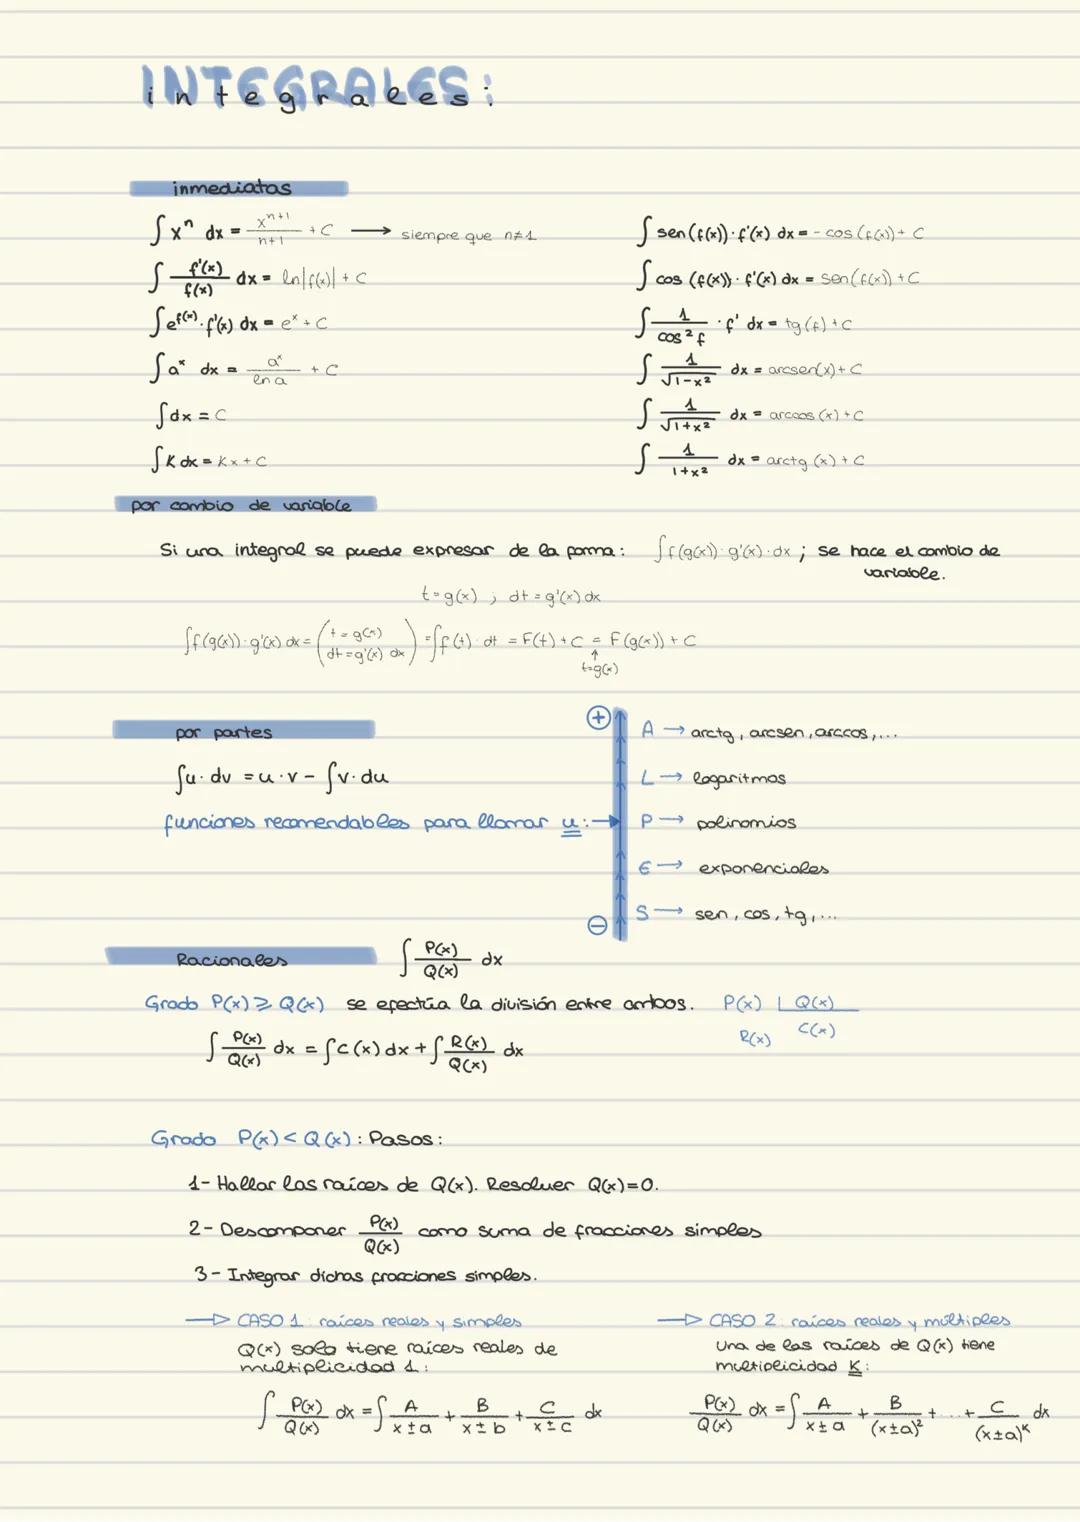 INTEGRALES:
integrales:
inmediatas
∫ xⁿ dx = xⁿ⁺¹/n+1 + C → siempre que n≠1
∫ f'(x)/f(x) dx = ln|f(x)| + C
∫ e^f(x) · f'(x) dx = eˣ + C
∫ aˣ dx = aˣ/ln a + C
∫ dx = C
∫ K dx = Kx + C
∫ sen(f(x)) · f'(x) dx = - cos(f(x)) + C
∫ cos (f(x)) · f'(x) dx = sen(f(x)) + C
∫ 1/cos² f · f' dx = tg(f) + C
∫ 1/√1-x² dx = arcsen(x) + C
∫ 1/√1+x² dx = arccos (x) + C
∫ 1/1+x² dx = arctg (x) + C
por cambio de variable
Si una integral se puede expresar de la forma: ∫ f(g(x)) · g'(x) · dx ; se hace el cambio de
variable.
t = g(x) ; dt = g'(x) dx
∫ f(g(x)) · g'(x) dx = (t = g(x) dt = g'(x) dx) = ∫ f(t) · dt = F(t) + C = F(g(x)) + C
↑
t=g(x)
por partes
∫ u · dv = u · v - ∫ v · du
funciones recomendables para llamar u: →
⊕
A → arctg, arcsen, arccos, ...
L → logaritmos
P → polinomios
E → exponenciales
S → sen, cos, tg, ...
⊖
Racionales ∫ P(x)/Q(x) dx
Grado P(x) ≥ Q(x) se efectúa la división entre ambos. P(x) | Q(x)
R(x) C(x)
∫ P(x)/Q(x) dx = ∫ C(x) dx + ∫ R(x)/Q(x) dx
Grado P(x) < Q(x) : Pasos:
1- Hallar las raíces de Q(x). Resolver Q(x)=0.
2- Descomponer P(x)/Q(x) como suma de fracciones simples
3- Integrar dichas fracciones simples.
→ CASO 1: raíces reales y simples
Q(x) solo tiene raíces reales de
multiplicidad 1:
∫ P(x)/Q(x) dx = ∫ A/x±a + B/x±b + C/x±c dx
→ CASO 2: raíces reales y múltiples
Una de las raíces de Q(x) tiene
multiplicidad K:
P(x)/Q(x) dx = ∫ A/x±a + B/(x±a)² + ... + C/(x±a)ᴷ dx